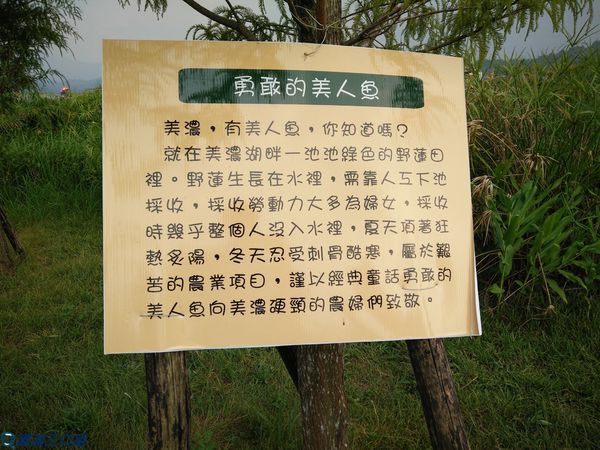 勇敢的美人魚
美濃，有美人魚，你知道嗎？
就在美濃湖畔一池池綠色的野蓮田
裡。野蓮生長在水裡，需靠人工下池
採收，採收勞動力大多為婦女，採收
時幾乎整個人沒入水裡，夏天頂著狂
熱炙陽，冬天忍受刺骨酷寒，屬於艱
苦的農業項目，謹以經典童話勇敢的
美人魚向美濃硬頸的農婦們致敬。